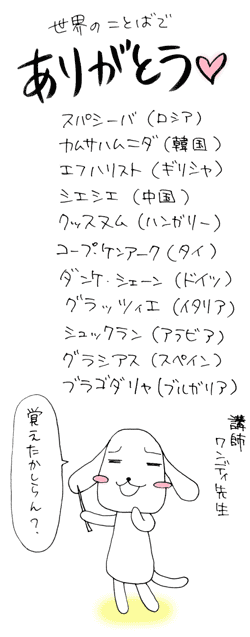 世界のことばで
ありがとう♡
スパシーバ(ロシア)
カムサハムニダ(韓国)
エフハリスト(ギリシャ)
シエシエ(中国)
クッスヌム(ハンガリー)
コープ・ケンアーク(タイ)
ダンケ・シェーン(ドイツ)
グラッツィエ(イタリア)
シュックラン(アラビア)
グラシアス(スペイン)
ブラゴダリャ(ブルガリア)
講師
ワンディ先生
覚えたかしらん?